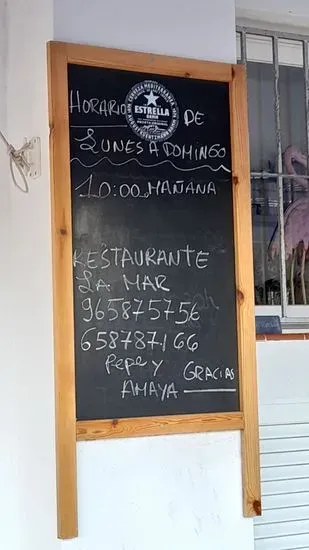 HORARIO DE
ESTRELLA
DAMM
LUNES A DOMINGO
10:00 MAÑANA
RESTAURANTE
LA MAR
965875756
658787166
Pepe y
AMAYA
GRACIAS